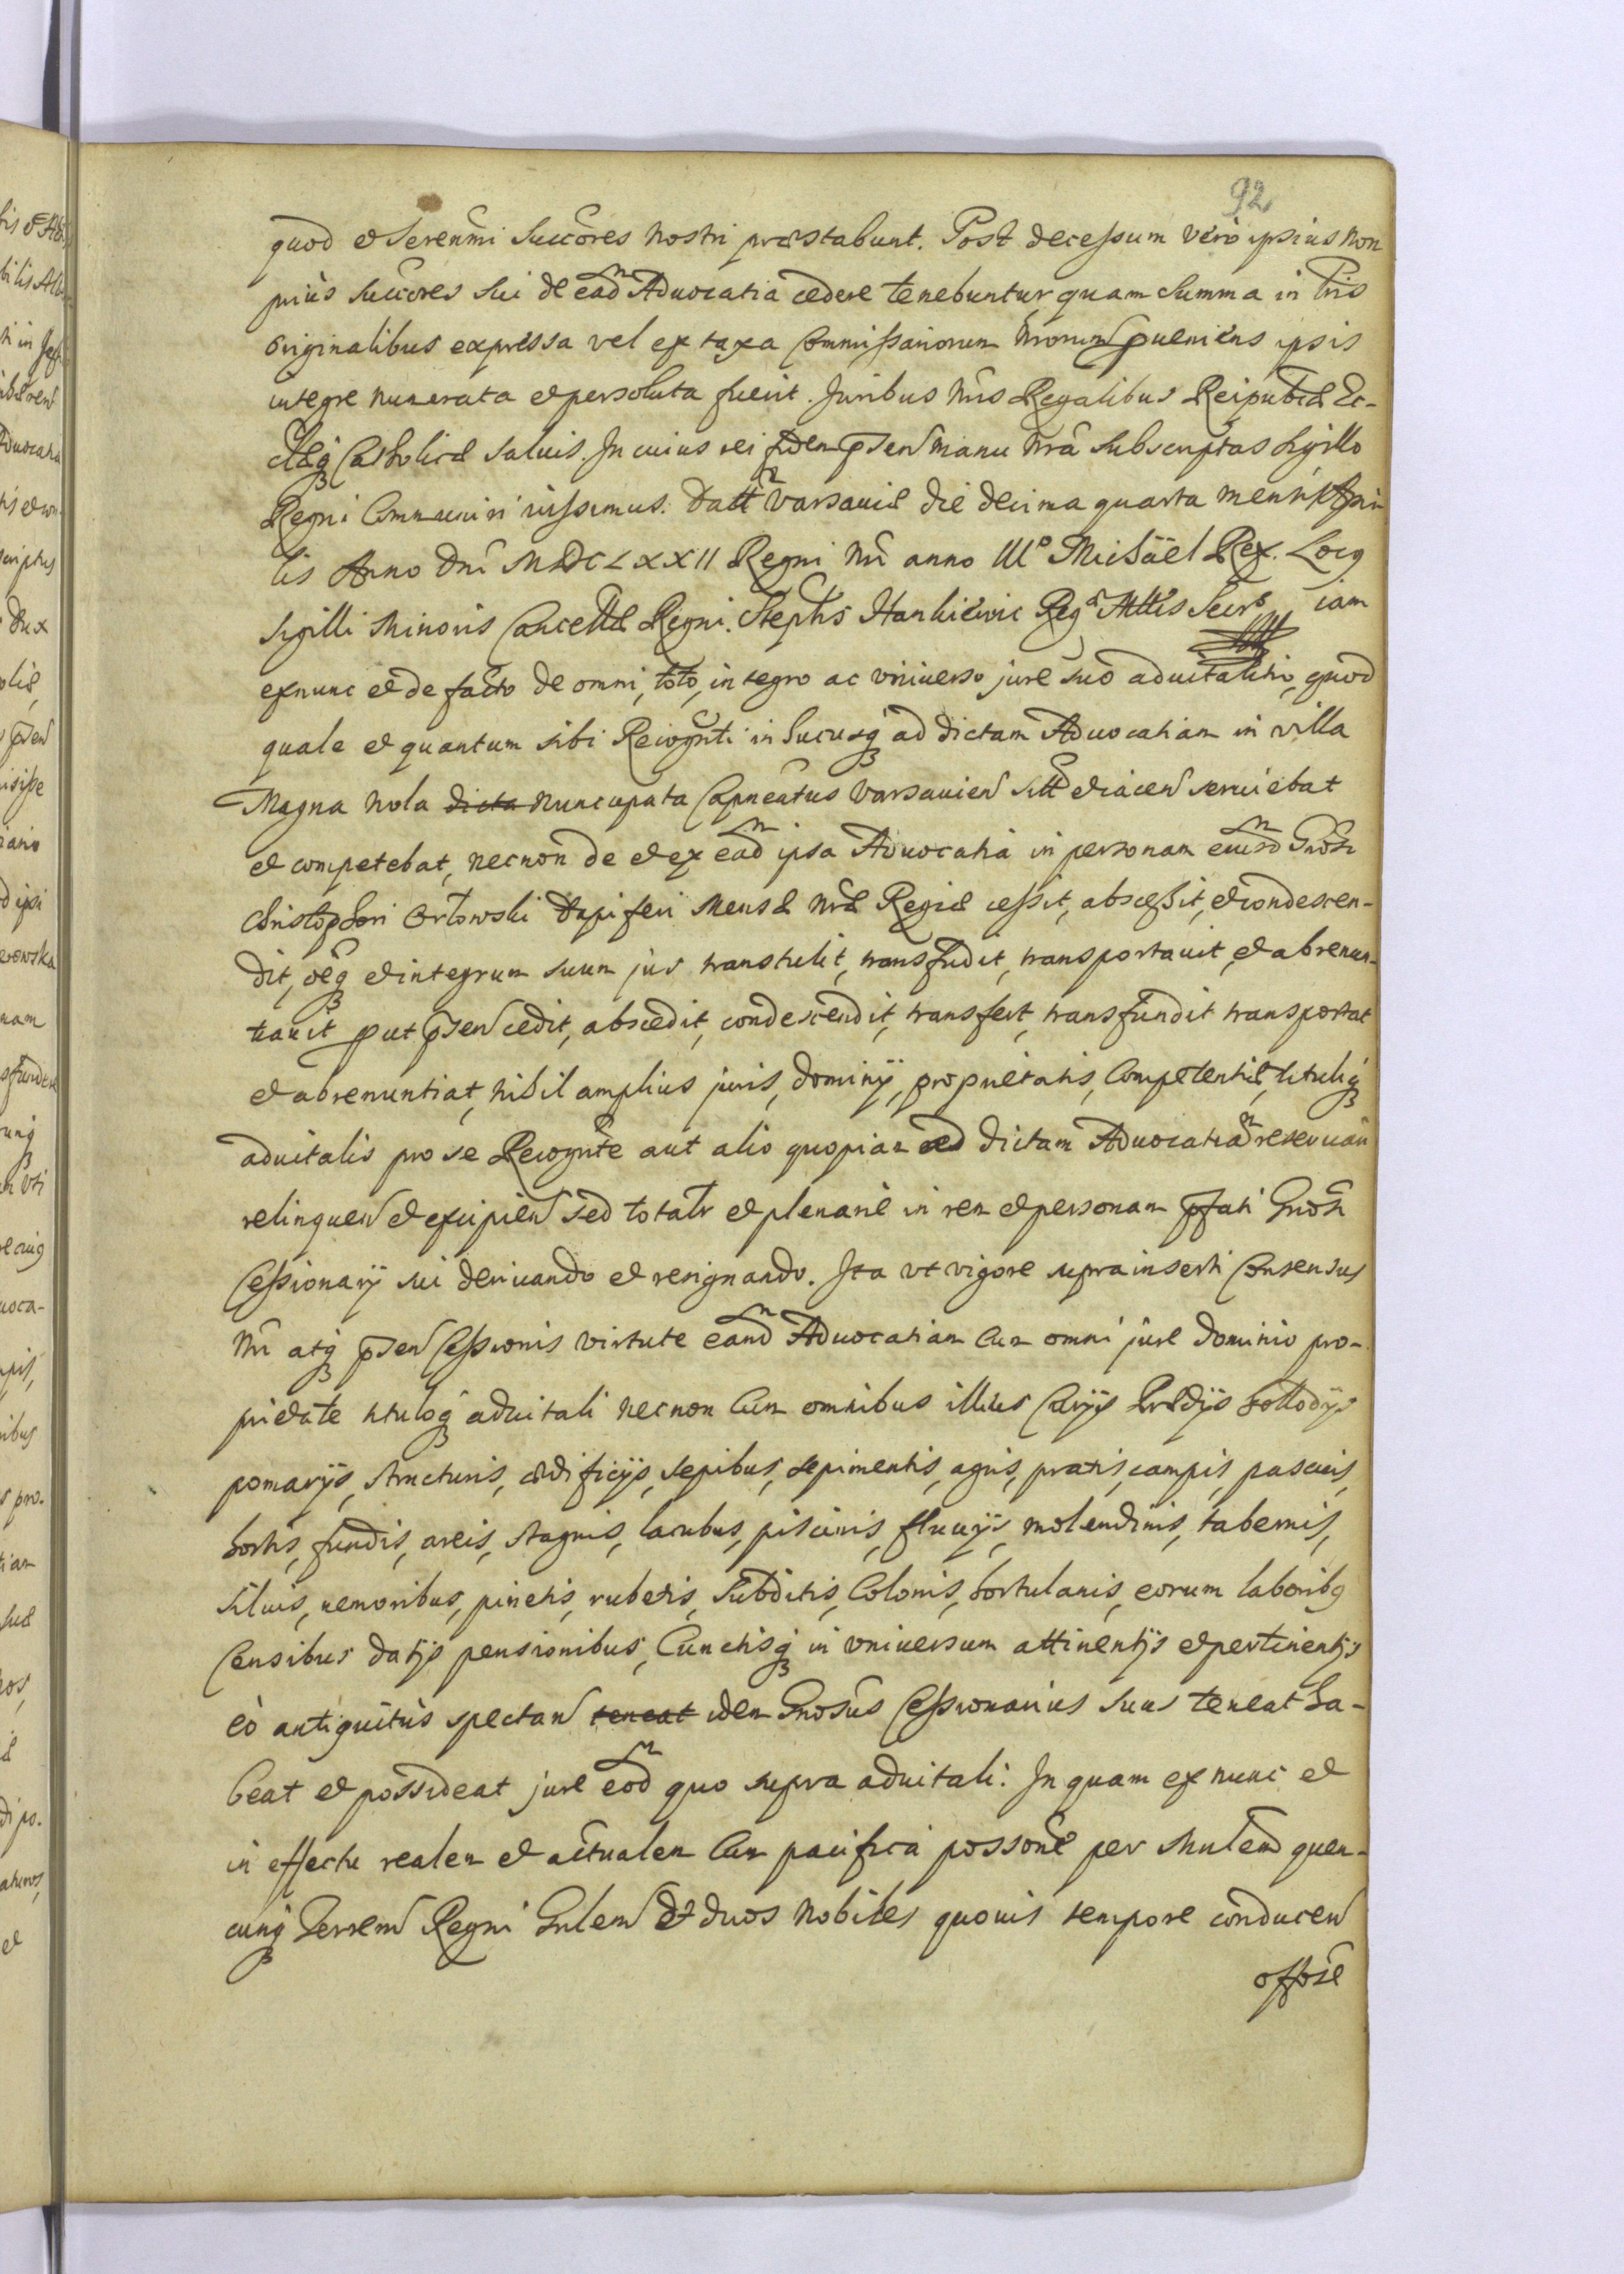 92
quod et Serenmi Succores nostri præstabunt. Post decessum verò ipsius non
priùs succores sui de eadm Aduocatia cedere tenebuntur, quam summa in lris
originalibus expressa vel ex taxa Commissariorum nrorum pueniens ipsis
integre numerata et persoluta fuerit. Juribus nris Regalibus Reipublcæ Ec-
clæq Catholicæ saluis. In cuius rei fidem psen manu nrâ subscriptas sigillo
Regni Communiri iussimus. Datt Varsauiæ die decima quarta mensis Apri
lis Anno Dni MDCLXXII Regni nri anno IIIo Michäel Rex. Locq
sigilli minoris Cancellæ Regni. Stephs Hankiewic Rega Mttis Secrs iam
exnunc et de facto de omni, toto, integro ac vniuerso jure suo aduitalitio, quod
quale et quantum sibi Recognti in hucusq ad dictam Aduocatiam in villa
Magna Wola dicta nuncupata Capneatus Varsauien sitt et iacen seruiebat
et competebat, necnon de et ex eadm ipsa Aduocatia in personam eiusdm Gnosi
Christophori Orłowski Dapiferi Mensæ nræ Regiæ cessit, abscessit, et condescen-
dit, oeq et integrum suum jus transtulit, transfudit, transportauit, et abrenun-
tiauit put psen cedit, abscedit, condescendit, transfert, transfundit transportat
et abrenuntiat, nihil amplius juris, dominij, proprietatis, Competentiæ, tituliq
aduitalis pro se Recognte aut alio quopiam ad dictam Aduocatiam reseruan
relinquen et excipien sed totalr et plenarie in rem et personam pfati Gnosi
Cessionarij sui deriuando et resignando. Ita vt vigore suprainserti Consensus
nri atq psen Cessionis virtute eandm Aduocatiam Cum omni jure dominio pro-
prietate tituloq aduitali necnon Cum omnibus illius Curijs Prædijs
pomarijs, structuris, ædificijs, sepibus, sepimentis, agris, pratis, campis, pascuis,
hortis, fundis, areis, stagnis, lacubus, piscinis, fluuijs, molendinis, tabernis,
siluis, nemoribus, pinetis, rubetis, subditis, Colonis, hortulanis, eorum laboribq
Censibus datijs pensionibus, Cunctisq in vniuersum attinentijs et pertinentijs
eò antiquitùs spectan teneat idem Gnosus Cessionarius suus teneat ha-
beat et possideat jure eodm quo supra aduitali. In quam ex nunc et
in effectu realem et actualem Cum pacifica possone per Mnlem quen-
cunq Terrem Regni Gnlem et duos Nobiles quouis tempore conducen
offose